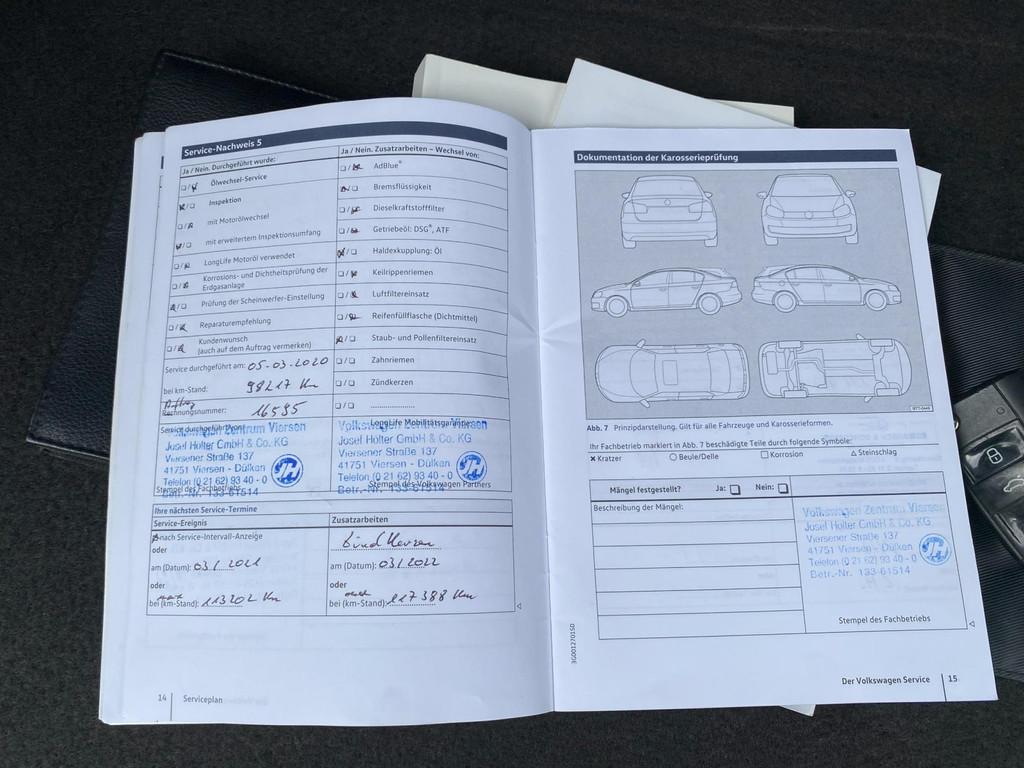 Service-Nachweis 5
Ja / Nein. Durchgeführt wurde:
Ölwechsel-Service
Inspektion
mit Motorölwechsel
mit erweitertem Inspektionsumfang
LongLife Motoröl verwendet
Korrosions- und Dichtheitsprüfung der
Erdgasanlage
Prüfung der Scheinwerfer-Einstellung
Reparaturempfehlung
Kundenwunsch
(auch auf dem Auftrag vermerken)
Service durchgeführt am: 05.03.2020
bei km-Stand: 98217 Km
Auftrag
Rechnungsnummer: 16595
Service durchgeführt von:
Volkswagen Zentrum Viersen
Josef Holter GmbH & Co. KG
Viersener Straße 137
41751 Viersen - Dülken
Telefon (0 21 62) 93 40 - 0
Betr.-Nr. 133-61514
JH
Stempel des Fachbetriebs
Ja / Nein. Zusatzarbeiten – Wechsel von:
AdBlue®
Bremsflüssigkeit
Dieselkraftstofffilter
Getriebeöl: DSG®, ATF
Haldexkupplung: Öl
Keilrippenriemen
Luftfiltereinsatz
Reifenfüllflasche (Dichtmittel)
Staub- und Pollenfiltereinsatz
Zahnriemen
Zündkerzen
LongLife Mobilitätsgarantie
Volkswagen Zentrum Viersen
Josef Holter GmbH & Co. KG
Viersener Straße 137
41751 Viersen - Dülken
Telefon (0 21 62) 93 40 - 0
Betr.-Nr. 133-61514
JH
Stempel des Volkswagen Partners
Ihre nächsten Service-Termine
Service-Ereignis
nach Service-Intervall-Anzeige
oder
am (Datum): 03/2021
oder
bei (km-Stand): 113202 Km
Zusatzarbeiten
am (Datum): 03/2022
oder
bei (km-Stand): 117388 Km
14 Serviceplan
Dokumentation der Karosserieprüfung
Abb. 7 Prinzipdarstellung. Gilt für alle Fahrzeuge und Karosserieformen.
Ihr Fachbetrieb markiert in Abb. 7 beschädigte Teile durch folgende Symbole:
Kratzer Beule/Delle Korrosion Steinschlag
Mängel festgestellt? Ja: Nein:
Beschreibung der Mängel:
Volkswagen Zentrum Viersen
Josef Holter GmbH & Co. KG
Viersener Straße 137
41751 Viersen - Dülken
Telefon (0 21 62) 93 40 - 0
Betr.-Nr. 133-61514
JH
Stempel des Fachbetriebs
3G0012701S0
Der Volkswagen Service 15